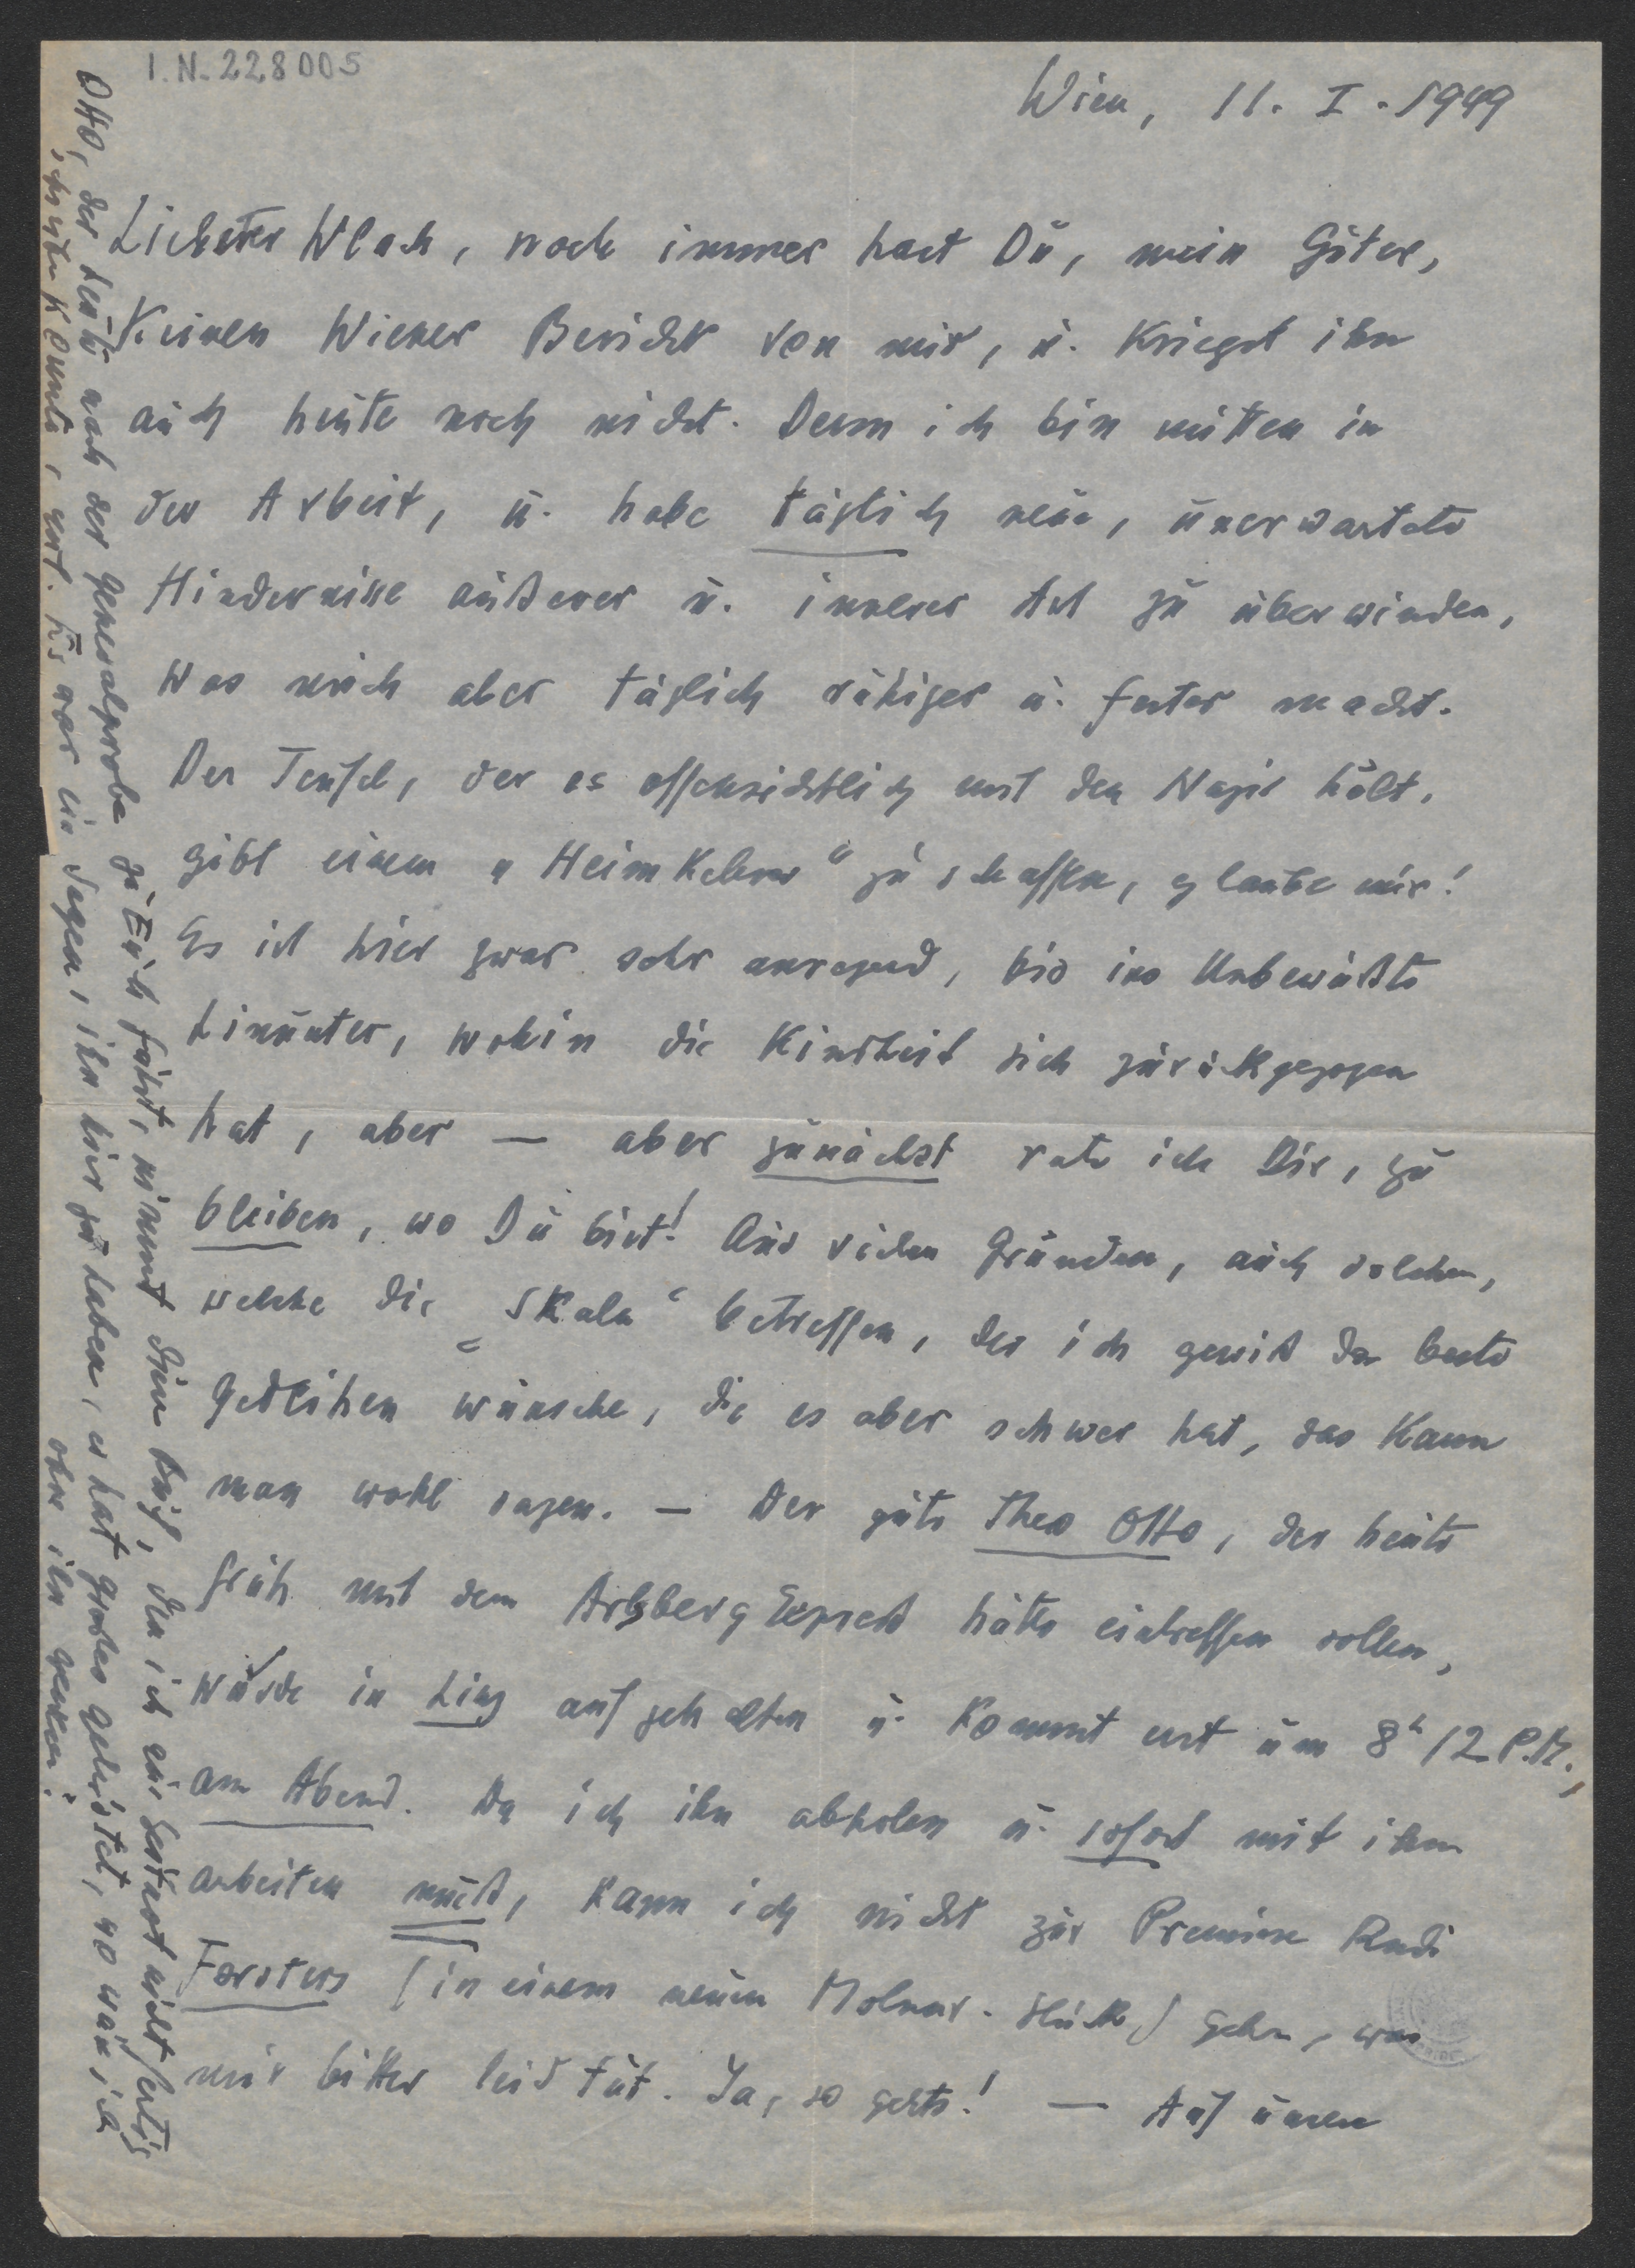 I.N. 228005
Wien, 11. I. 1949
Liebster Wlach, noch immer hast Du, mein Guter,
keinen Wiener Bericht von mir, u. kriegst ihn
auch heute noch nicht. Denn ich bin mitten in
der Arbeit, u. habe täglich neue, unerwartete
Hindernisse äußerer u. innerer Art zu überwinden,
was mich aber täglich ruhiger u. fester macht.
Der Teufel, der es offensichtlich mit den Nazis hält,
gibt einem „Heimkehrer“ zu schaffen, glaube mir!
Es ist hier zwar sehr anregend, bis ins Unbewußte
hinunter, wohin die Kindheit sich zurückgezogen
hat, aber — aber zunächst rate ich Dir, zu
bleiben, wo Du bist! Aus vielen Gründen, auch solchen,
welche die „Skala“ betreffen, der ich gewiß das beste
Gedeihen wünsche, die es aber schwer hat, das kann
man wohl sagen. — Der gute Theo Otto, der heute
früh mit dem Arlberg Express hätte eintreffen sollen,
wurde in Linz aufgehalten u. kommt erst um 8h 12 P.M.,
am Abend. Da ich ihn abholen u. sofort mit ihm
arbeiten muß, kann ich nicht zur Premiere Rudi
Forsters (in einem neuen Molnar-Stück) gehn, was
mir bitter leid tut. Ja, so gehts! — Auf unsern
Otto, der heute nach der Generalprobe zu Euch fährt, nimmt den Brief, den ich erst nicht fertig
schreiben konnte, mit. Es war ein Segen, ihn hier zu haben, er hat großes geleistet, wo wär ich
ohne ihn gewesen!